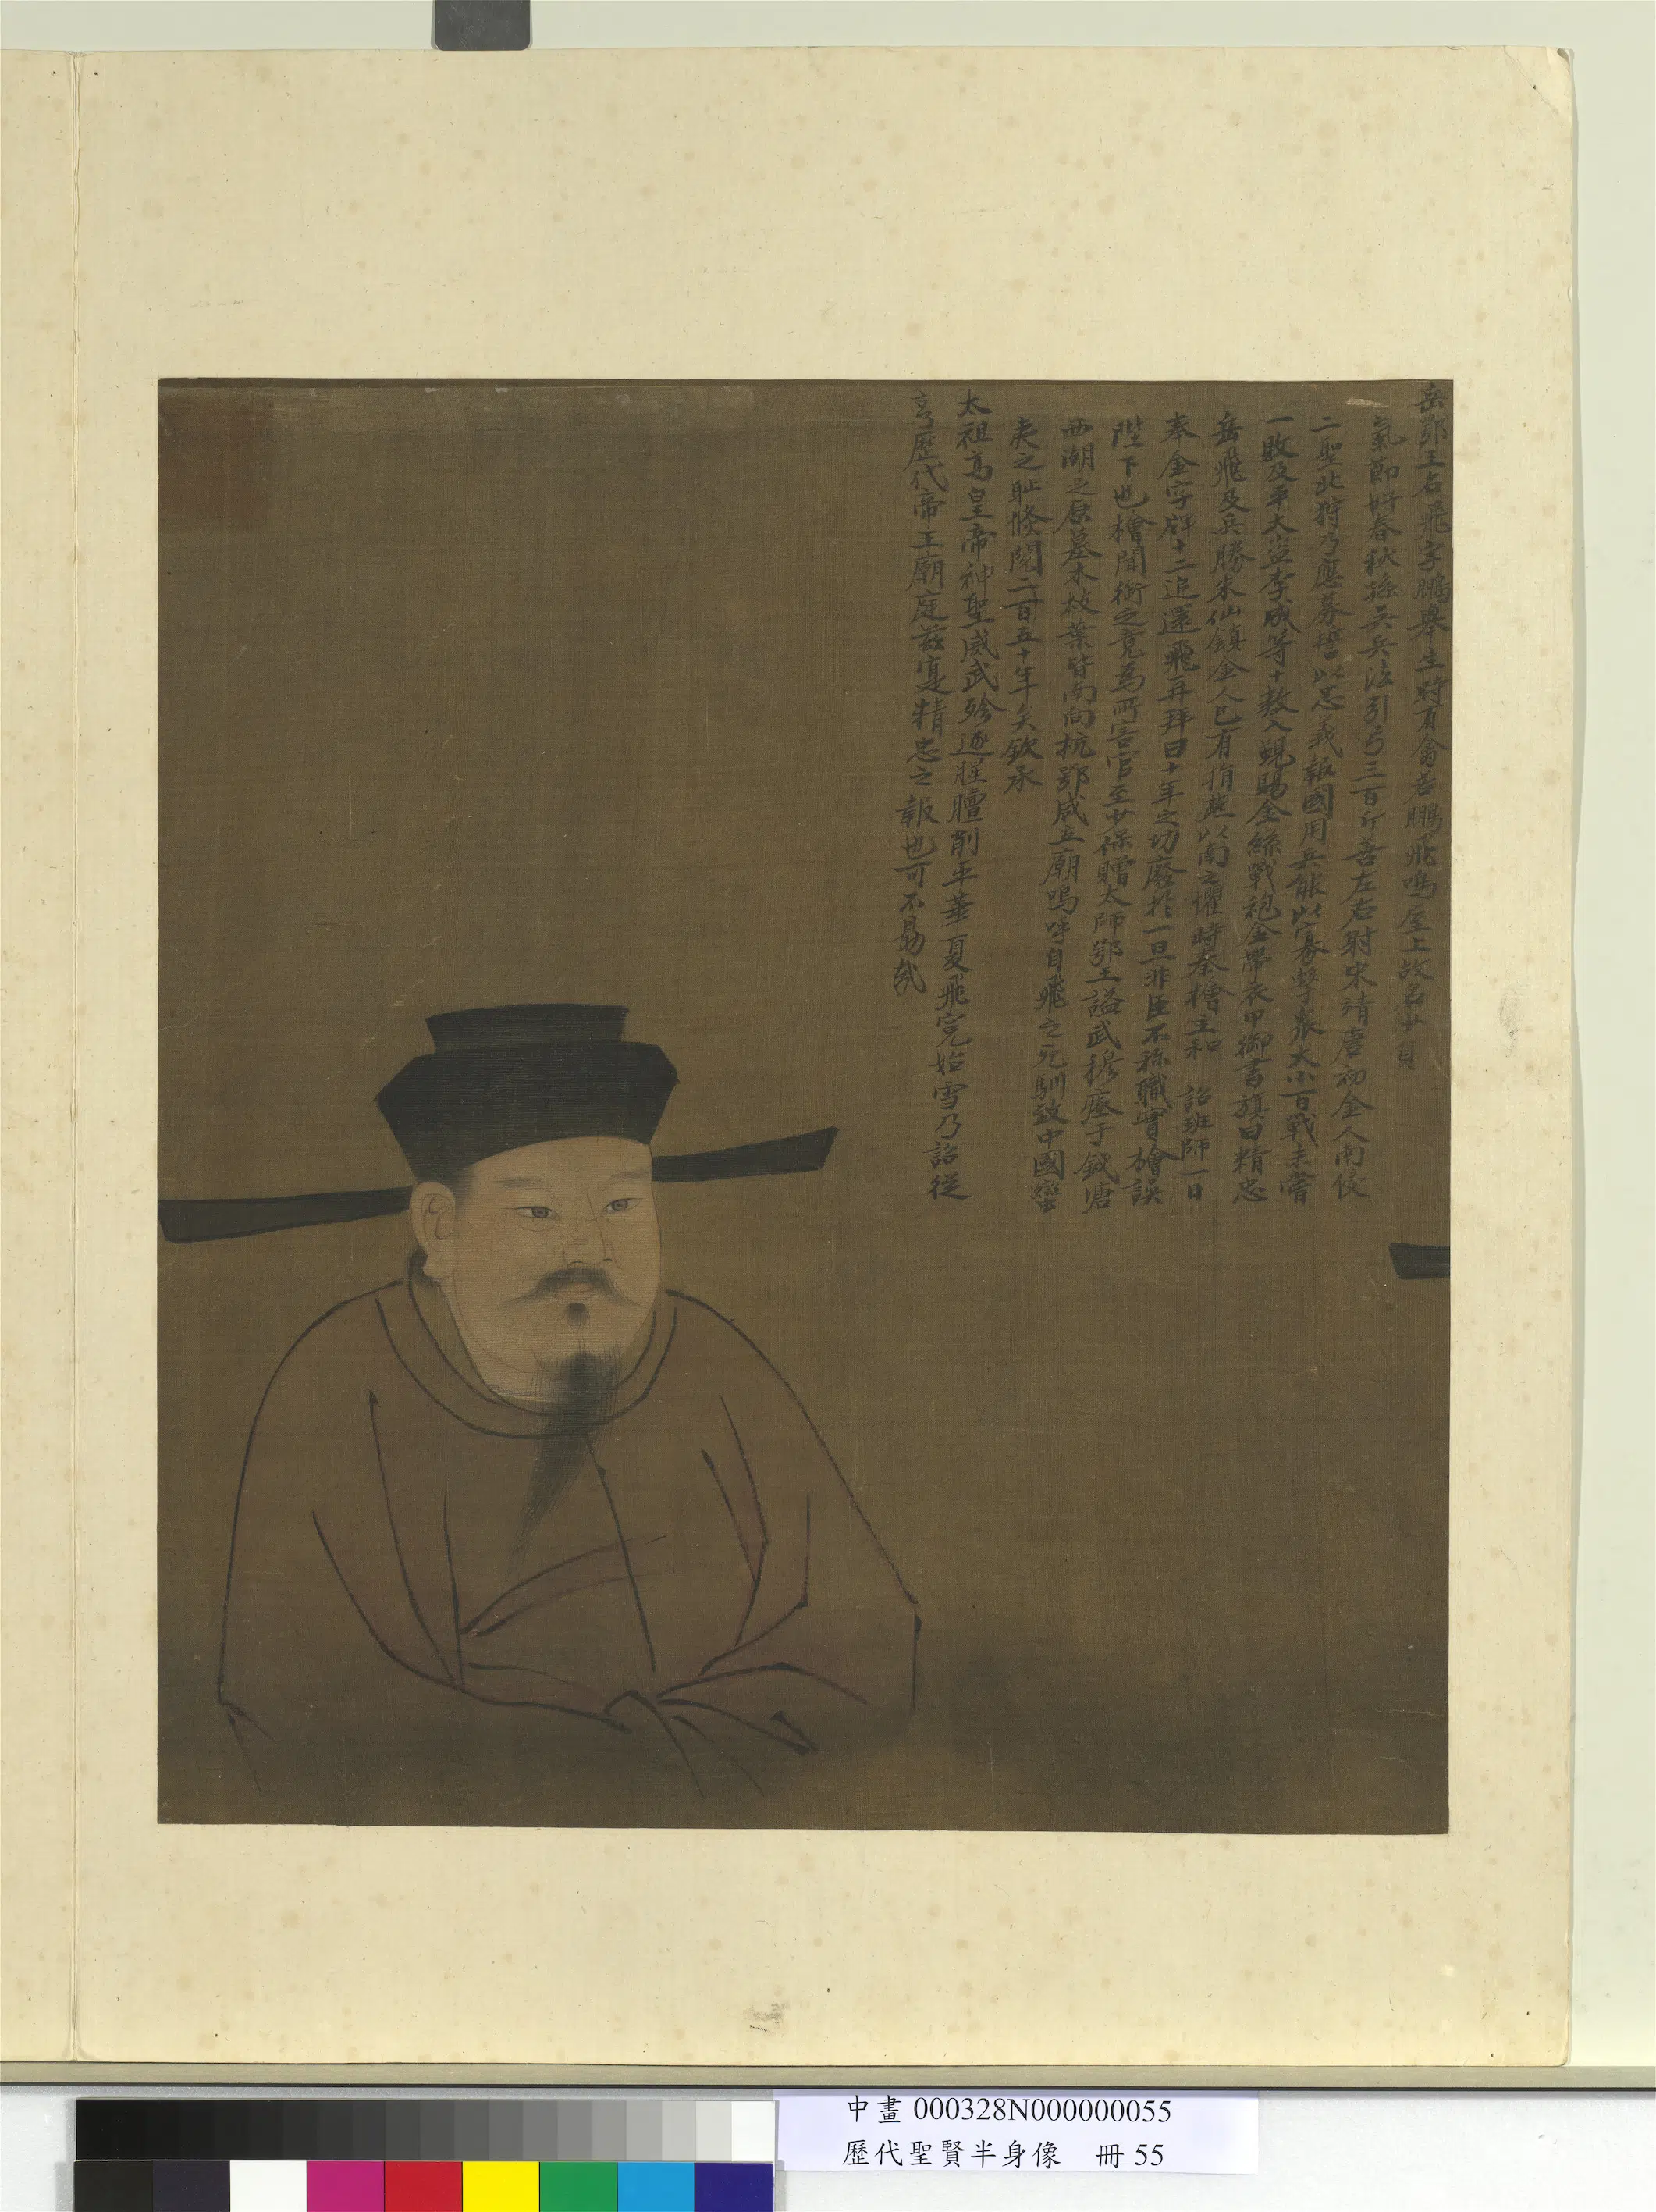 岳鄂王名飛字鵬舉生時有禽若鵬飛鳴屋上故名少負
氣節好春秋孫吳兵法引弓三百斤善左右射宋靖康初金人南侵
二聖北狩乃應募誓以忠義報國用兵能以寡擊衆大小百戰未嘗
一敗及平大盜李成等十數入覲賜金絲戰袍金帶衣甲御書旗曰精忠
岳飛及兵勝朱仙鎮金人已有捐燕以南之懼時秦檜主和 詔班師一日
奉金字牌十二追還飛再拜曰十年之功廢於一旦非臣不稱職實檜誤
陛下也檜聞銜之竟為所害官至少保贈太師鄂王謚武穆瘞于錢塘
西湖之原墓木枝葉皆南向杭鄂咸立廟嗚呼自飛之死馴致中國蠻
夷之耻倏閱二百五十年矣欽承
太祖高皇帝神聖威武殄逐腥膻削平華夏飛寃始雪乃詔從
享歷代帝王廟庭茲寔精忠之報也可不勗哉
中畫 000328N000000055
歷代聖賢半身像 冊 55